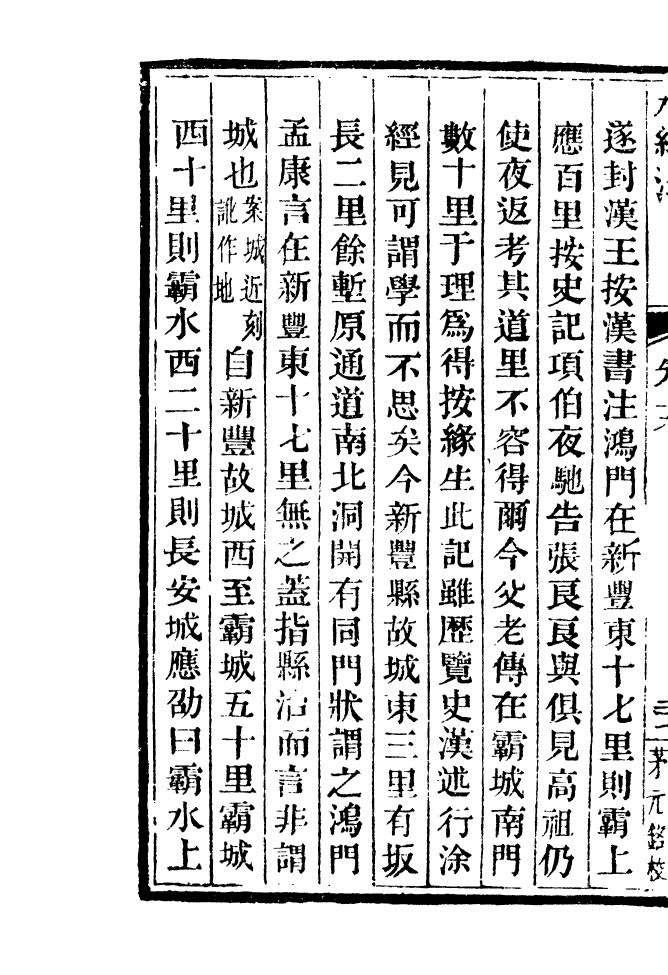 茅元銘校
遂封漢王按漢書注鴻門在新豐東十七里則霸上
應百里按史記項伯夜馳告張良良與俱見高祖仍
使夜返考其道里不容得爾今父老傳在霸城南門
數十里于理爲得按緣生此記雖歷覽史漢述行涂
經見可謂學而不思矣今新豐縣故城東三里有坂
長二里餘塹原通道南北洞開有同門狀謂之鴻門
孟康言在新豐東十七里無之蓋指縣治而言非謂
城也案城近刻訛作地自新豐故城西至霸城五十里霸城
西十里則霸水西二十里則長安城應劭曰霸水上